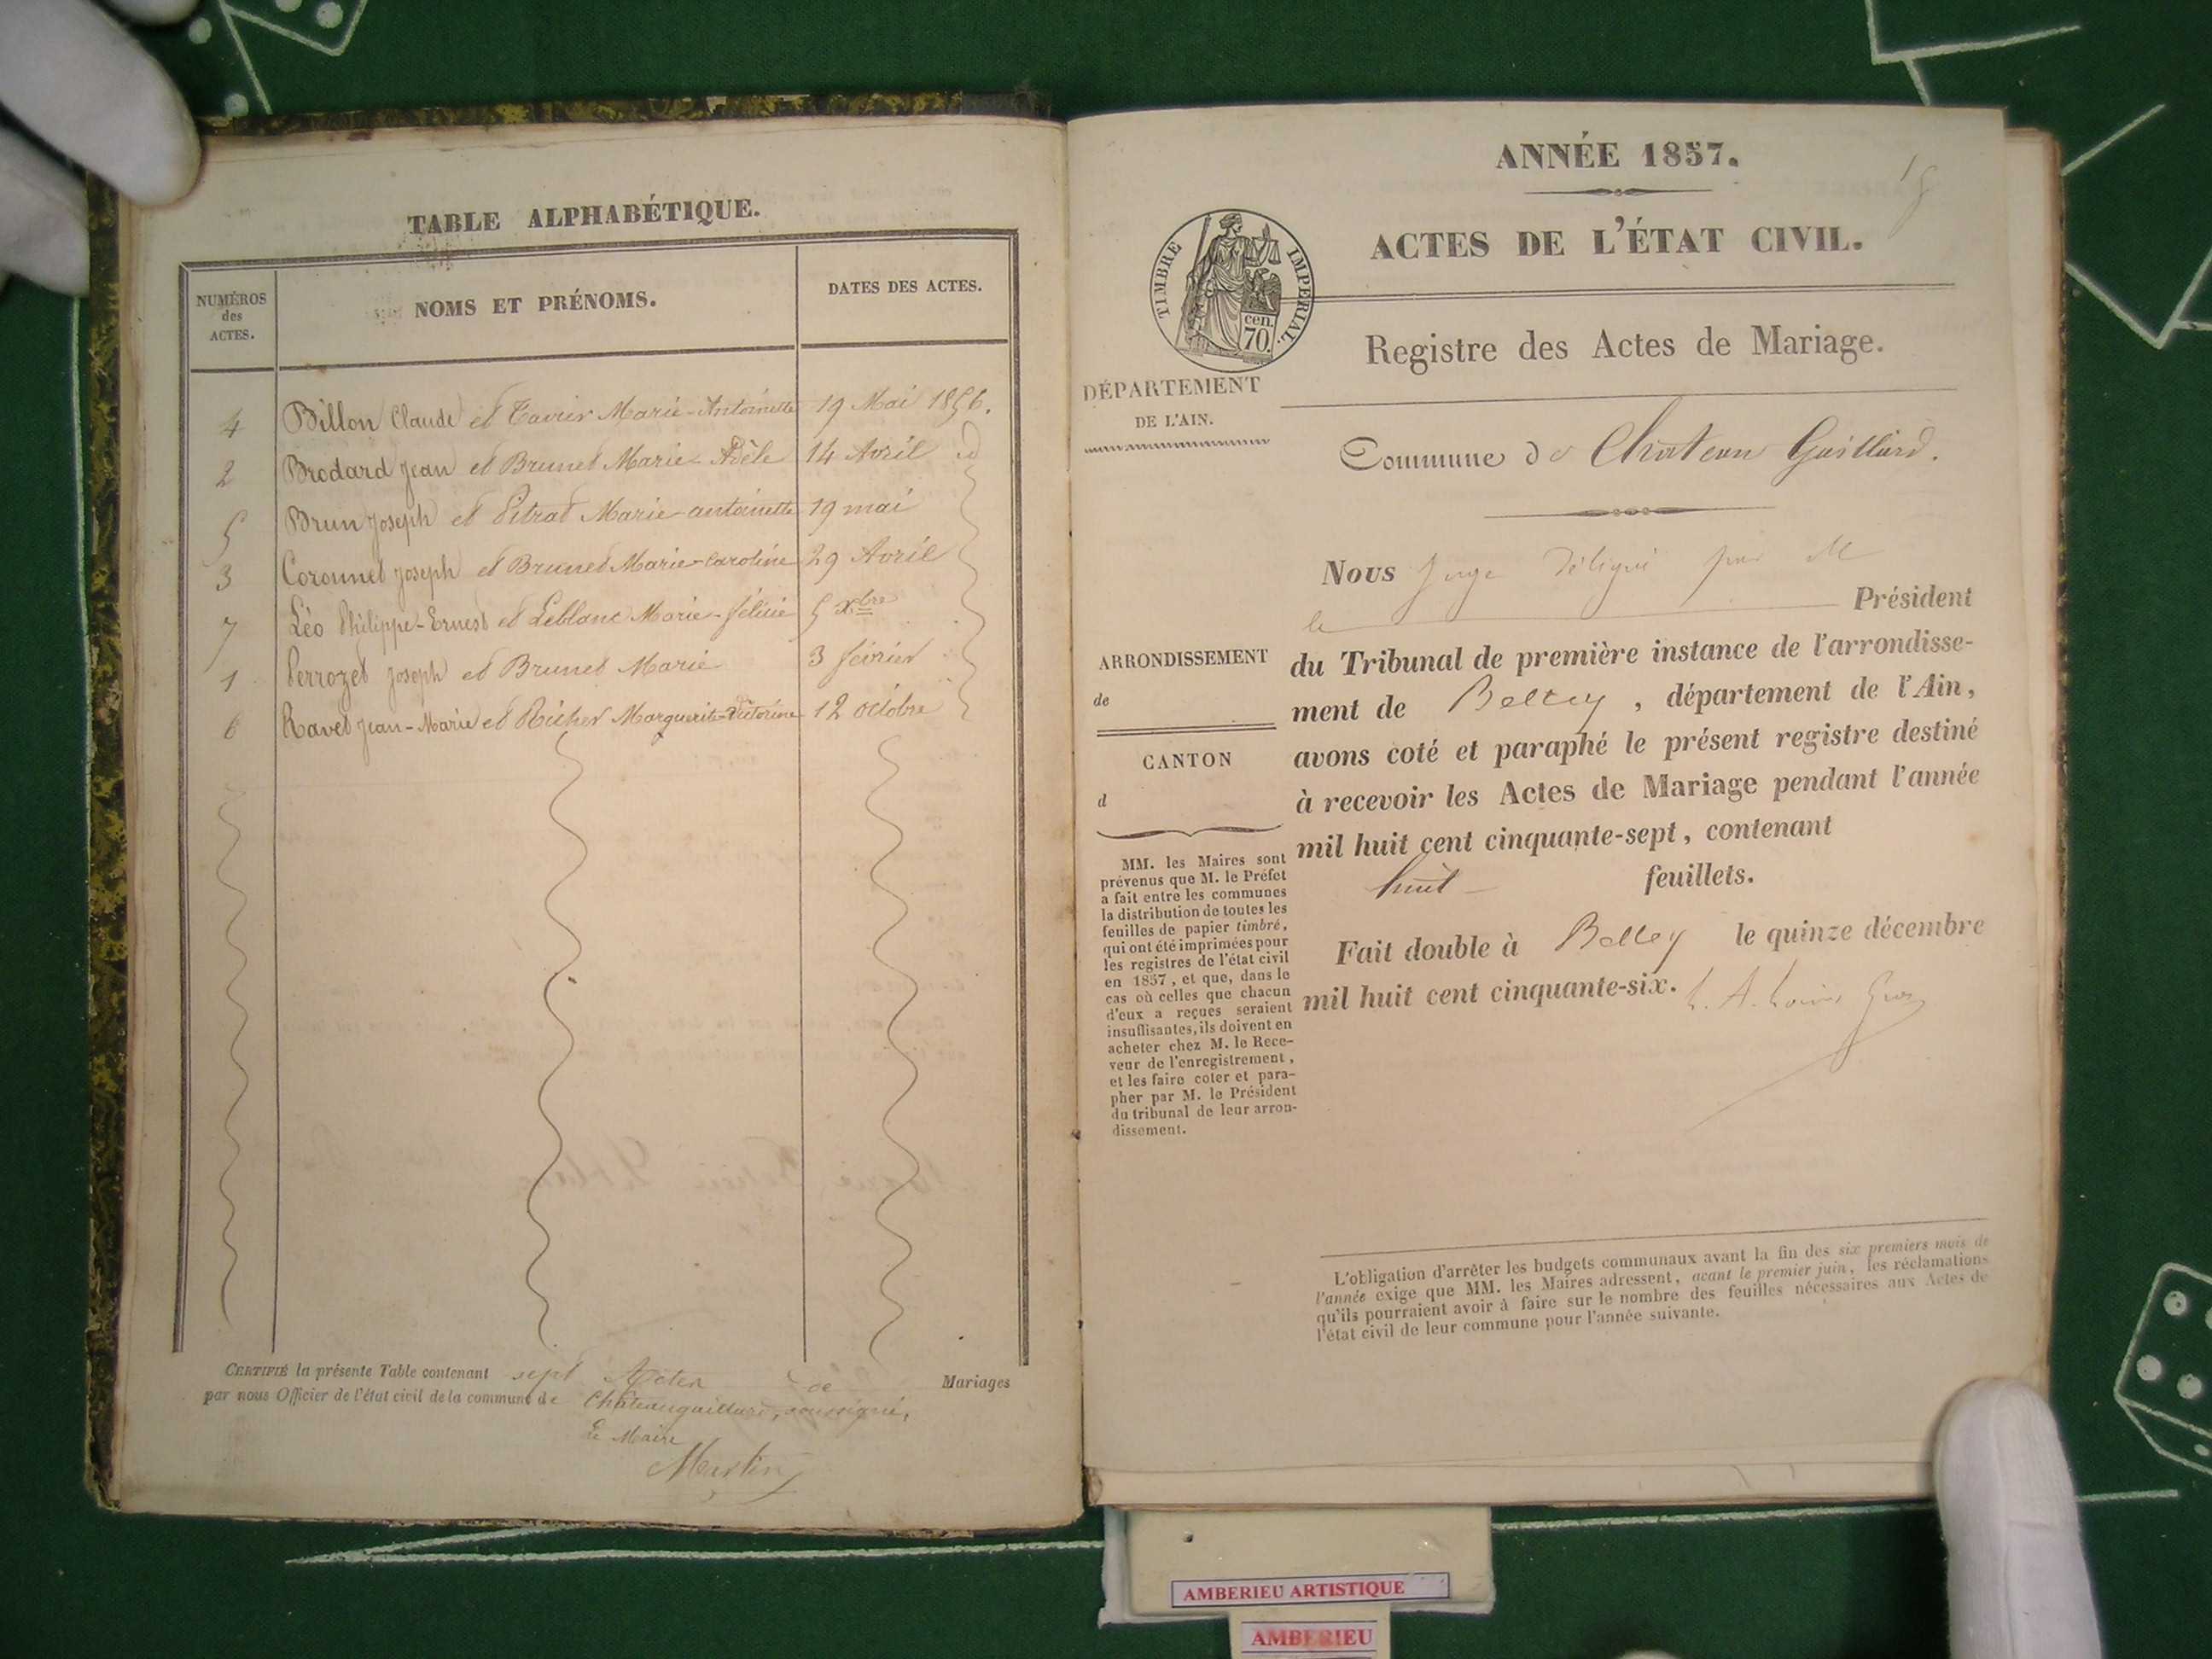 TABLE ALPHABÉTIQUE.
NUMÉROS des ACTES.
NOMS ET PRÉNOMS.
DATES DES ACTES.
4 Billon Claude et Tavier Marie-Antoinette 19 Mai 1856.
2 Brodard Jean et Brunet Marie-Adèle 14 Avril id
5 Brun Joseph et Pitrat Marie-antoinette 19 mai
3 Coronnet Joseph et Brunet Marie-Caroline 29 Avril
7 Léo Philippe-Ernest et Leblanc Marie-félicie 5 Xbre
1 Perrozet Joseph et Brunet Marie 3 février
6 Ravet Jean-Marie et Richer Marguerite-Victorine 12 octobre
CERTIFIÉ la présente Table contenant sept Actes de Mariages
par nous Officier de l'état civil de la commune de Châteaugaillard, soussigné,
Le Maire
Martin
ANNÉE 1857.
ACTES DE L'ÉTAT CIVIL.
TIMBRE IMPERIAL.
cen. 70.
Registre des Actes de Mariage.
DÉPARTEMENT
DE L'AIN.
Commune de Chateau Gaillard.
Nous Juge Délégué par M
le Président
du Tribunal de première instance de l'arrondisse-
ment de Belley, département de l'Ain,
avons coté et paraphé le présent registre destiné
à recevoir les Actes de Mariage pendant l'année
mil huit cent cinquante-sept, contenant
huit feuillets.
Fait double à Belley le quinze décembre
mil huit cent cinquante-six.
ARRONDISSEMENT
de
CANTON
d
MM. les Maires sont
prévenus que M. le Préfet
a fait entre les communes
la distribution de toutes les
feuilles de papier timbré,
qui ont été imprimées pour
les registres de l'état civil
en 1857, et que, dans le
cas où celles que chacun
d'eux a reçues seraient
insuffisantes, ils doivent en
acheter chez M. le Rece-
veur de l'enregistrement,
et les faire coter et para-
pher par M. le Président
du tribunal de leur arron-
dissement.
L'obligation d'arrêter les budgets communaux avant la fin des six premiers mois de
l'année exige que MM. les Maires adressent, avant le premier juin, les réclamations
qu'ils pourraient avoir à faire sur le nombre des feuilles nécessaires aux Actes de
l'état civil de leur commune pour l'année suivante.
AMBERIEU ARTISTIQUE
AMBERIEU